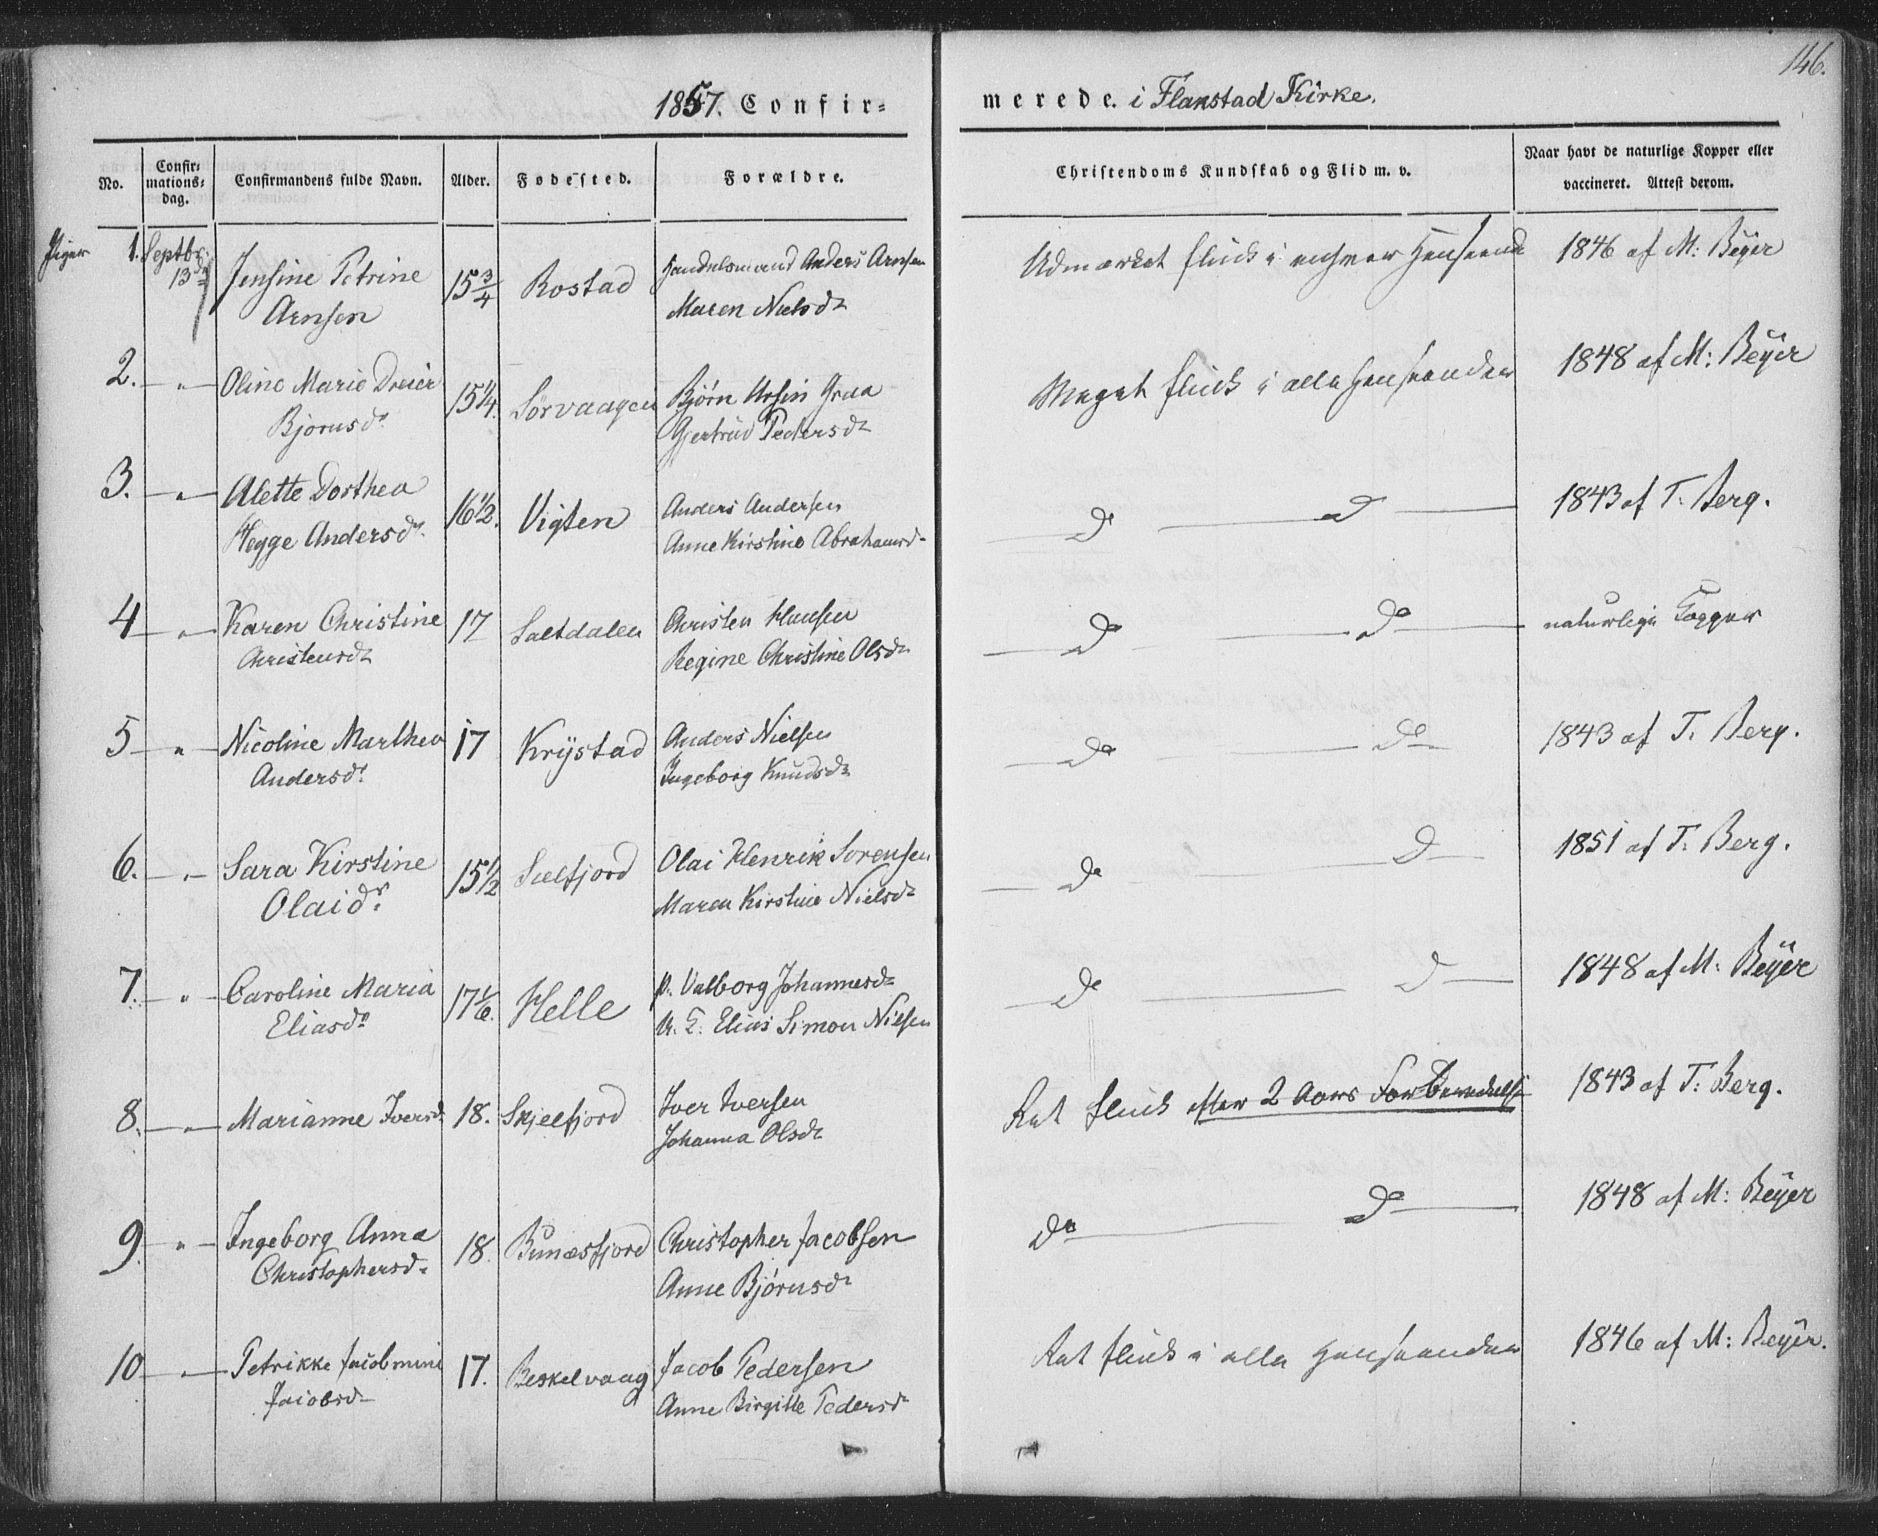 146.
1857. Confir=
merede. i Flakstad Kirke.
No.
Confir=
mations=
dag.
Confirmandens fulde Navn.
Alder.
Fødested.
Forældre.
Christendoms Kundskab og Flid m. v.
Naar havt de naturlige Kopper eller
vaccineret. Attest derom.
Piger 1. Septbr. 13de Jensine Petrine 15 3/4 Rostad Handelsmand Anders Arnsen Udmærket flink i enhver Henseende 1846 af M: Beÿer
Arnsen Maren Nielsdr
2. — " — Oline Marie Dreier 15 1/4. Sørvaagen Bjørn Ursin Graa Meget flink i alle Henseender 1848 af M: Beÿer
Bjørnsdr Gjertrud Pedersdr
3. — " — Alette Dorthea 16 1/2. Vigten Anders Andersen — Do — Do — 1843 af T. Berg.
Hegge Andersdr. Anne Kirstine Abrahamsd-
4 — " — Karen Christine 17 Saltdalen Christen Hansen — Do — Do — naturlige Kopper
Christensdr Regine Christine Olsdr
5 — " — Nicoline Marthea 17 Krÿstad Anders Nielsen — Do — Do — 1843 af T. Berg.
Andersdr Ingeborg Knudsdr
6. — " — Sara Kirstine 15 1/2 Sælfjord Olai Henrik Sørensen — Do — Do — 1851 af T. Berg.
Olaidr. Maren Kirstine Nielsdr
7. — " — Caroline Maria 17 1/6. Helle p. Valborg Johannesdr — Do — Do — 1848 af M: Beÿer
Eliasdr U. E. Elias Simon Nielsen
8. — " — Marianne Iversd. 18. Skjelfjord Iver Iversen Ret flink efter 2 Aars Forberedelse 1843 af T: Berg.
Johanna Olsdr
9. — " — Ingeborg Anna 18. Bunæsfjord Christopher Jacobsen Do — Do — 1848 af M: Beÿer
Christophersd- Anne Bjørnsdr
10 — " — Petrikke Jacobmine 17. Beskelvaag Jacob Pedersen Ret flink i alle Henseender 1846 af M: Beÿer.
Jacobsd- Anne Birgitte Pedersdr